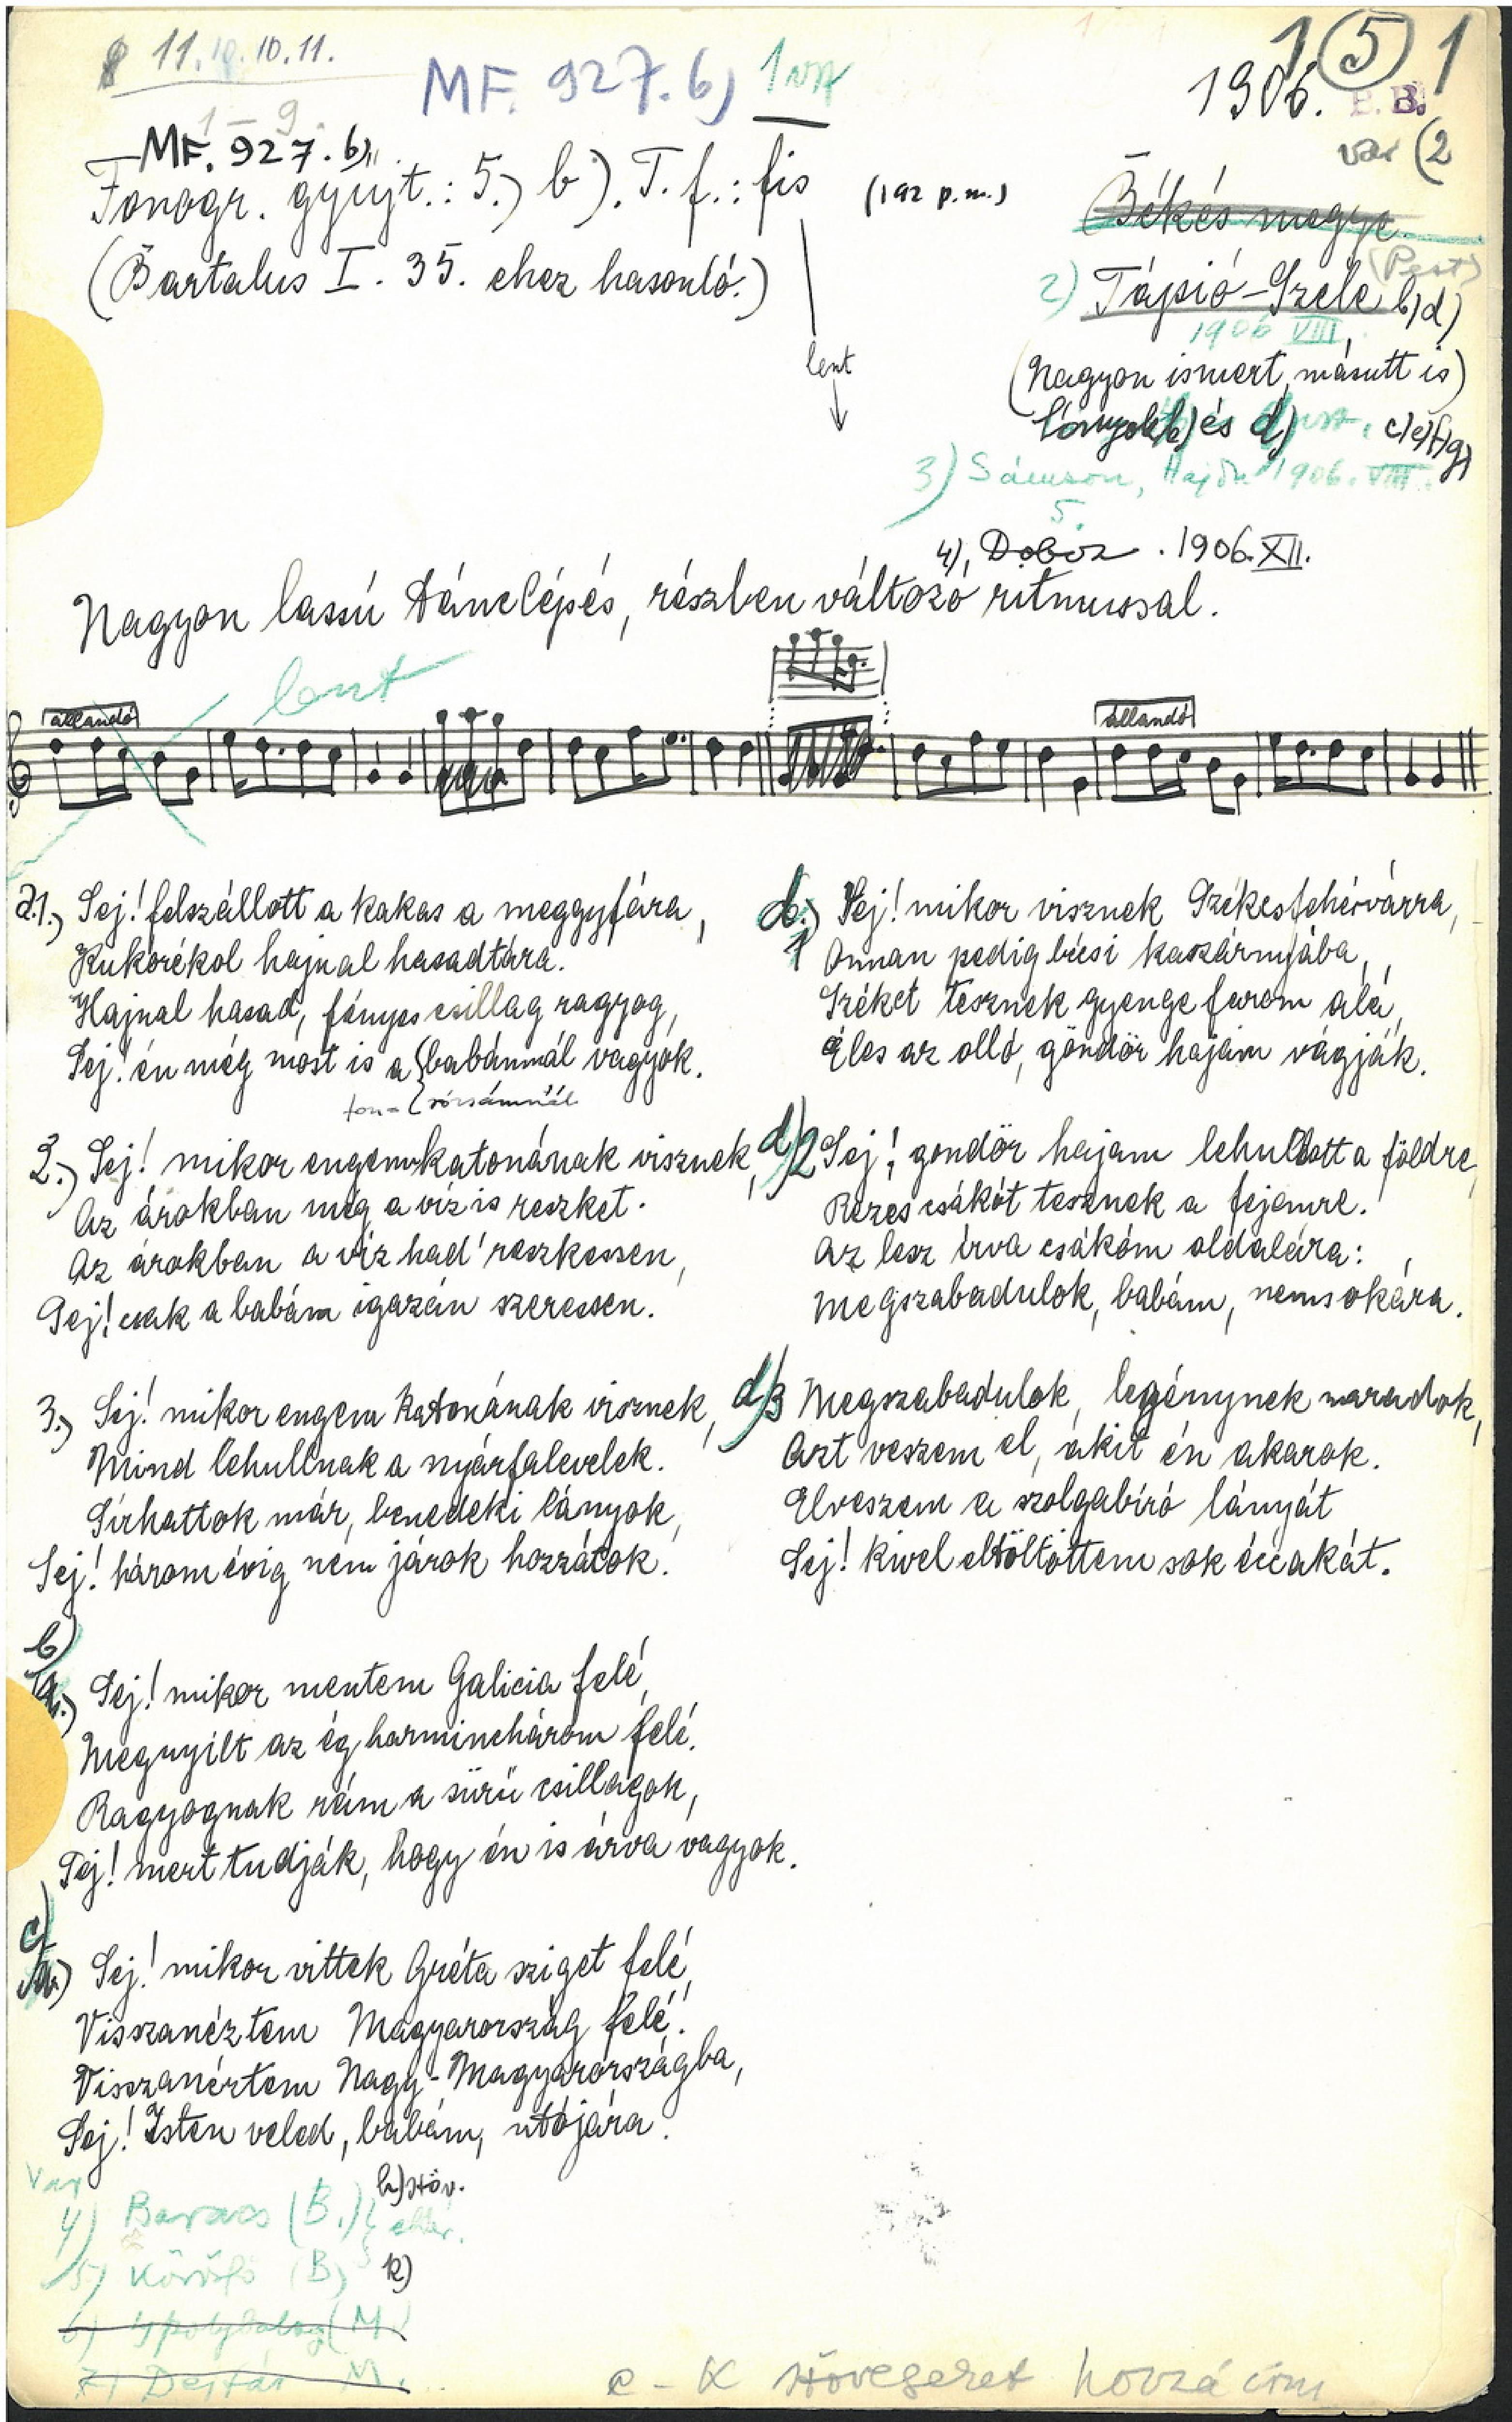 11.10.10.11.
MF. 927. b) 1 vsz
1 5 1
1906. B.B.
var (2
1 – 9.
MF. 927. b)
Fonogr. gyujt.: 5.) b). T. f.: fis (192 p.m.)
(Bartalus I. 35. ehez hasonló.)
lent
Békés megye
(Pest)
2) Tápió-Szele b) d)
1906 VIII.
(Nagyon ismert, másutt is)
lányok b) és d) c) e) f) g)
3) Sámson, Hajdu 1906. VIII.
5.
4), Doboz. 1906. XII.
Nagyon lassú tánclépés, részben változó ritmussal.
lent
állandó
állandó
a.1.) Sej! felszállott a kakas a meggyfára,
Kukorékol hajnal hasadtára.
Hajnal hasad, fényes csillag ragyog,
Sej! én még most is a {babámnál vagyok.
fon= {rózsámnál
2.) Sej! mikor engem katonának visznek,
Az árokban még a víz is reszket.
Az árokban a víz had' reszkessen,
Sej! csak a babám igazán szeressen.
3.) Sej! mikor engem katonának visznek,
Mind lehullnak a nyárfalevelek.
Sírhattok már, benedeki lányok,
Sej! három évig nem járok hozzátok.
b)
Sej! mikor mentem Galicia felé,
Megnyilt az ég harminchárom felé.
Ragyognak rám a sürü csillagok,
Sej! mert tudják, hogy én is árva vagyok.
c)
Sej! mikor vittek Gréta sziget felé,
Visszanéztem Magyarország felé.
Visszanéztem Nagy-Magyarországba,
Sej! Isten veled, babám, utójára.
d.) Sej! mikor visznek Székesfehérvárra,
1 Onnan pedig bécsi kaszárnyába,
Széket tesznek gyenge farom alá,
Éles az olló, göndör hajam vágják.
d)2 Sej! göndör hajam lehullott a földre,
Rezes csákót tesznek a fejemre.
Az lesz írva csákóm oldalára:
Megszabadulok, babám, nemsokára.
d)3 Megszabadulok, legénynek maradok,
Azt veszem el, akit én akarok.
Elveszem a szolgabíró lányát
Sej! kivel eltöltöttem sok éccakát.
Var
4) Baracs (B.) h) szöv.
5) Kőrősfő (B) k)
6) Ipolybalog (M.)
7) Dejtár M.
e – k szövegeket hozzá írni